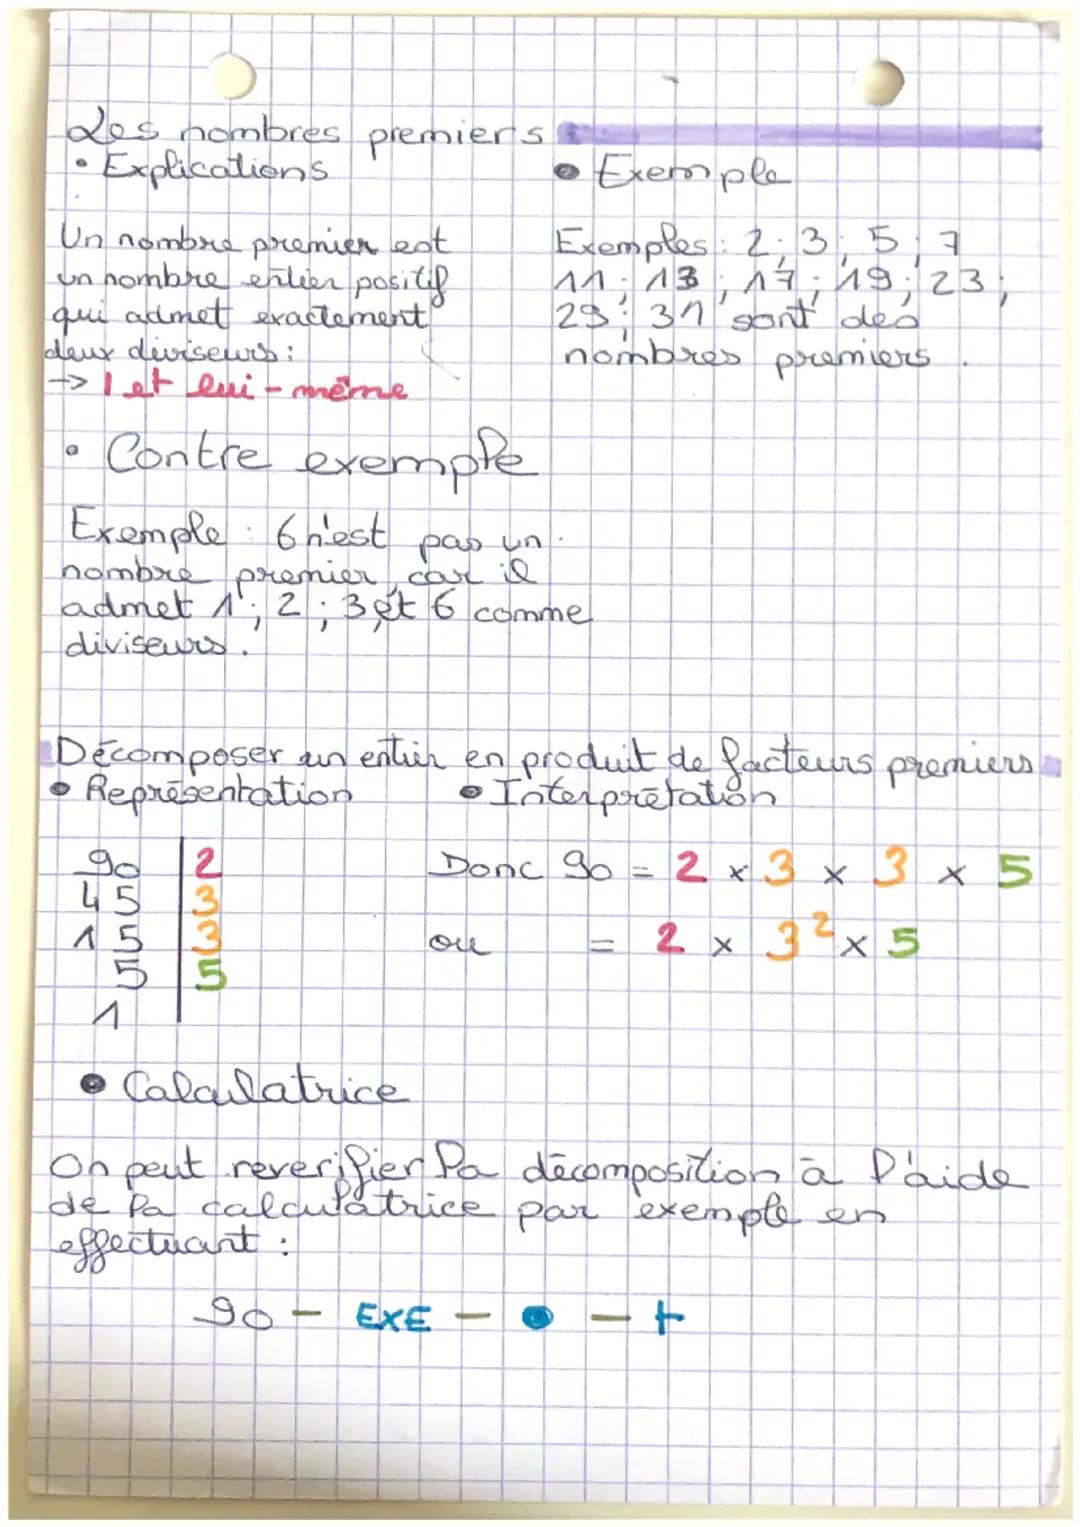 Les nombres premiers
• Explications
Un nombre premier est
un nombre entier positif
qui admet exactement
deux diviseurs :
-> 1 et lui-même
• Exemple
Exemples : 2 ; 3 ; 5 ; 7
11 ; 13 ; 17 ; 19 ; 23 ;
29 ; 31 sont des
nombres premiers .
• Contre exemple
Exemple : 6 n'est pas un
nombre premier, car il
admet 1 ; 2 ; 3 et 6 comme
diviseurs .
Décomposer un entier en produit de facteurs premiers
• Représentation
90 | 2
45 | 3
15 | 3
5 | 5
1
• Interprétation
Donc 90 = 2 × 3 × 3 × 5
ou = 2 × 3² × 5
• Calculatrice
On peut reverifier la décomposition à l'aide
de la calculatrice par exemple en
effectuant :
90 - EXE - • - +